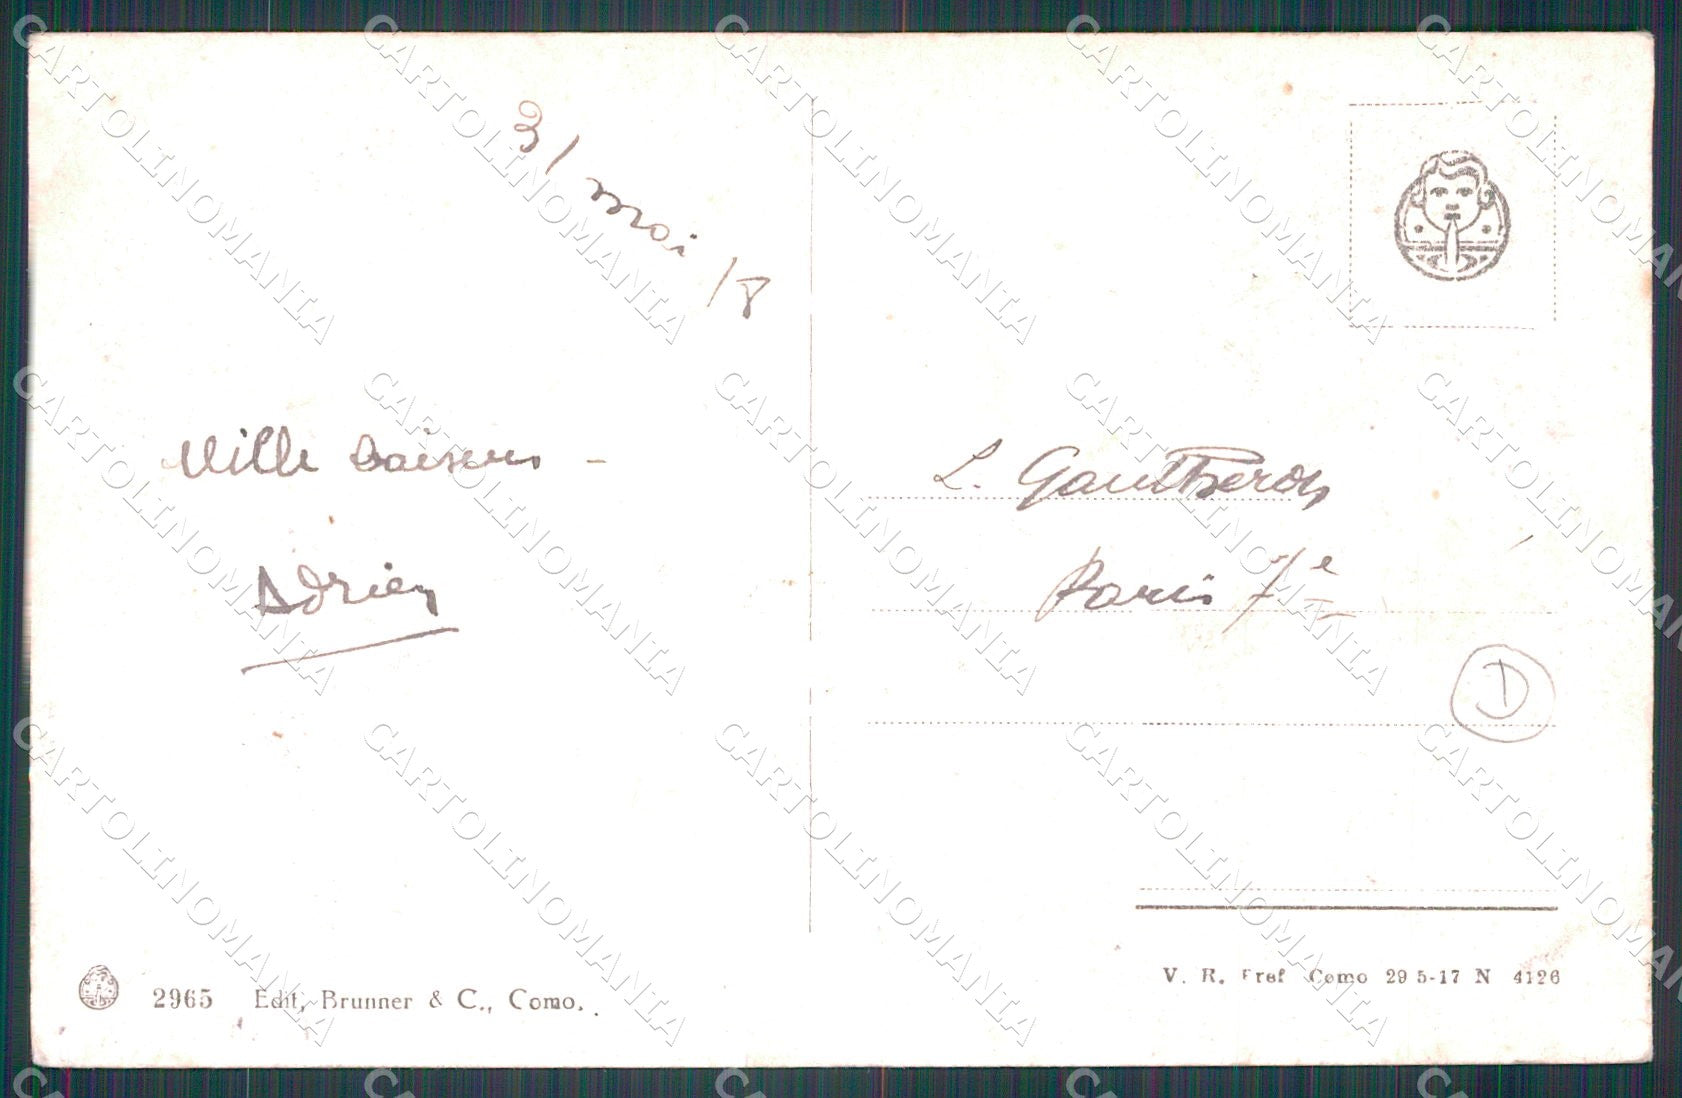 31 mai 18
Mille baisers -
Adrien
L. Gautheron
Paris 7e
D
2965 Edit, Brunner & C., Como.
V. R. Pref Como 29 5-17 N 4126
CARTOLINOMANIA